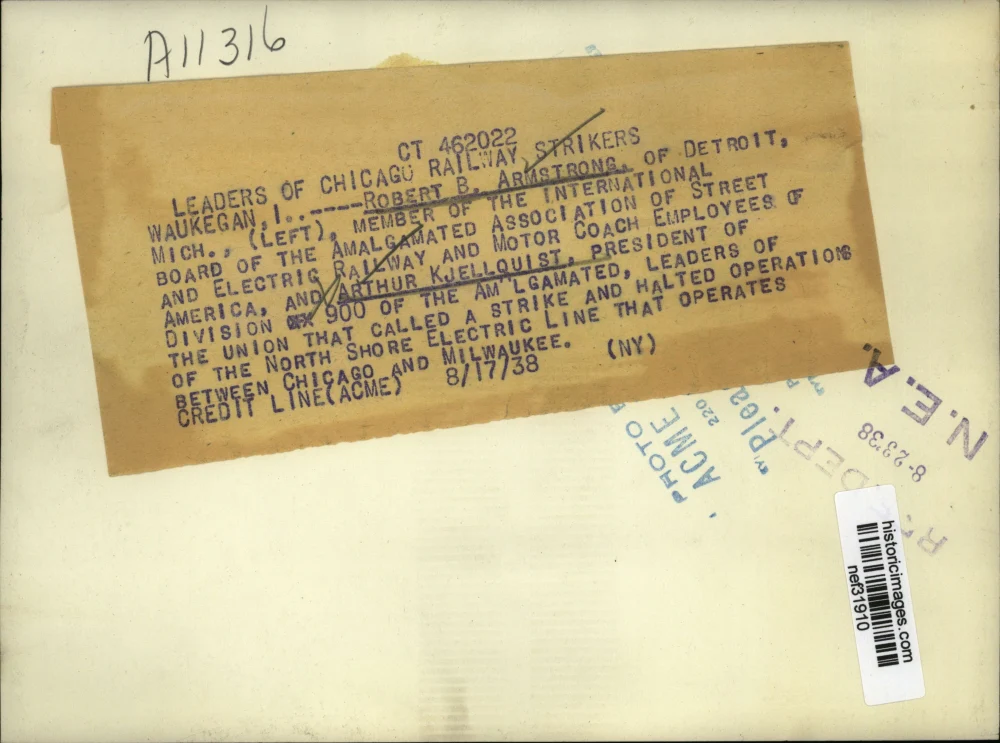 A11316
CT 462022
LEADERS OF CHICAGO RAILWAY STRIKERS
WAUKEGAN, I..-----ROBERT B. ARMSTRONG, OF DETROIT,
MICH., (LEFT), MEMBER OF THE INTERNATIONAL
BOARD OF THE AMALGAMATED ASSOCIATION OF STREET
AND ELECTRIC RAILWAY AND MOTOR COACH EMPLOYEES OF
AMERICA, AND ARTHUR KJELLQUIST, PRESIDENT OF
DIVISION 900 OF THE AM'LGAMATED, LEADERS OF
THE UNION THAT CALLED A STRIKE AND HALTED OPERATIONS
OF THE NORTH SHORE ELECTRIC LINE THAT OPERATES
BETWEEN CHICAGO AND MILWAUKEE. (NY)
CREDIT LINE(ACME) 8/17/38
PHOTO
ACME
220
Plea
N.E.A.
8-23'38
DEPT.
historicimages.com
nef31910